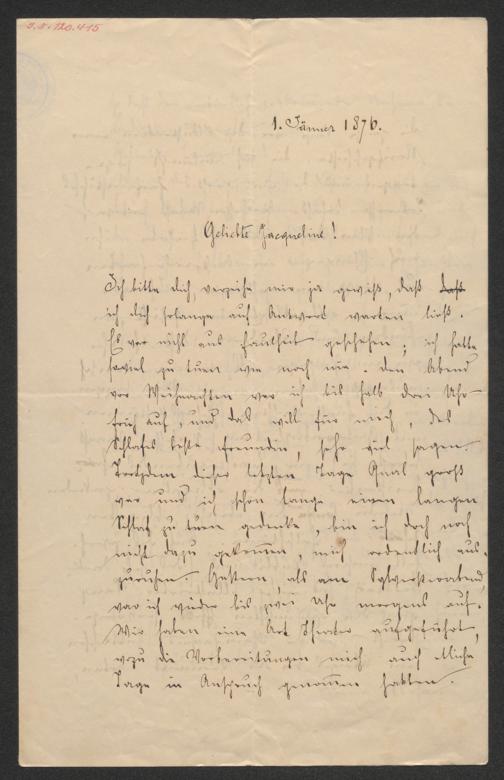 J.N. 120.415
1. Jänner 1876.
Geliebte Jacqueline!
Ich bitte dich, verzeihe mir ja gewiß, daß daß
ich dich solange auf Antwort warten ließ.
Es war nicht aus Faulheit geschehen; ich hatte
soviel zu tuen wie noch nie. Den Abend
vor Weihnachten war ich bis halb drei Uhr
früh auf, und das will für mich, des
Schlafes beste Freundin, sehr viel sagen.
Trotzdem dieser letzten Tage Qual groß
war und ich schon lange einen langen
Schlaf zu tuen gedenke, bin ich doch noch
nicht dazu gekommen, mich ordentlich aus-
zuruhen. Gestern, als am Sylvesterabend,
war ich wieder bis zwei Uhr morgens auf.
Wir haben eine Art Theater aufgeführt,
wozu die Vorbereitungen mich auch etliche
Tage in Anspruch genommen hatten.